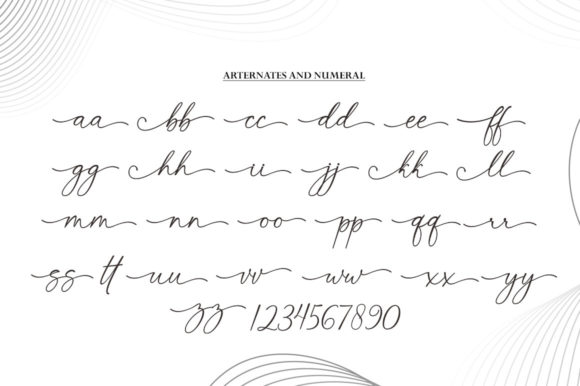 ARTERNATES AND NUMERAL
aa bb cc dd ee ff
gg hh ii jj kk ll
mm nn oo pp qq rr
ss tt uu vv ww xx yy
zz 1234567890